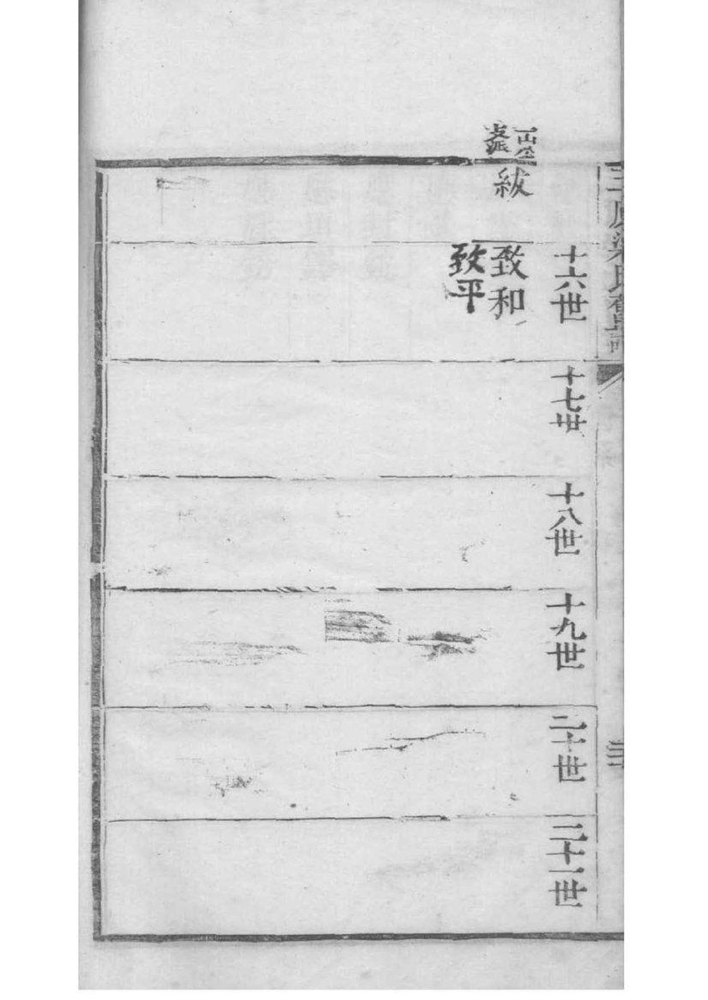 十六世
十七世
十八世
十九世
二十世
二十一世
支派
紱
致和
致平